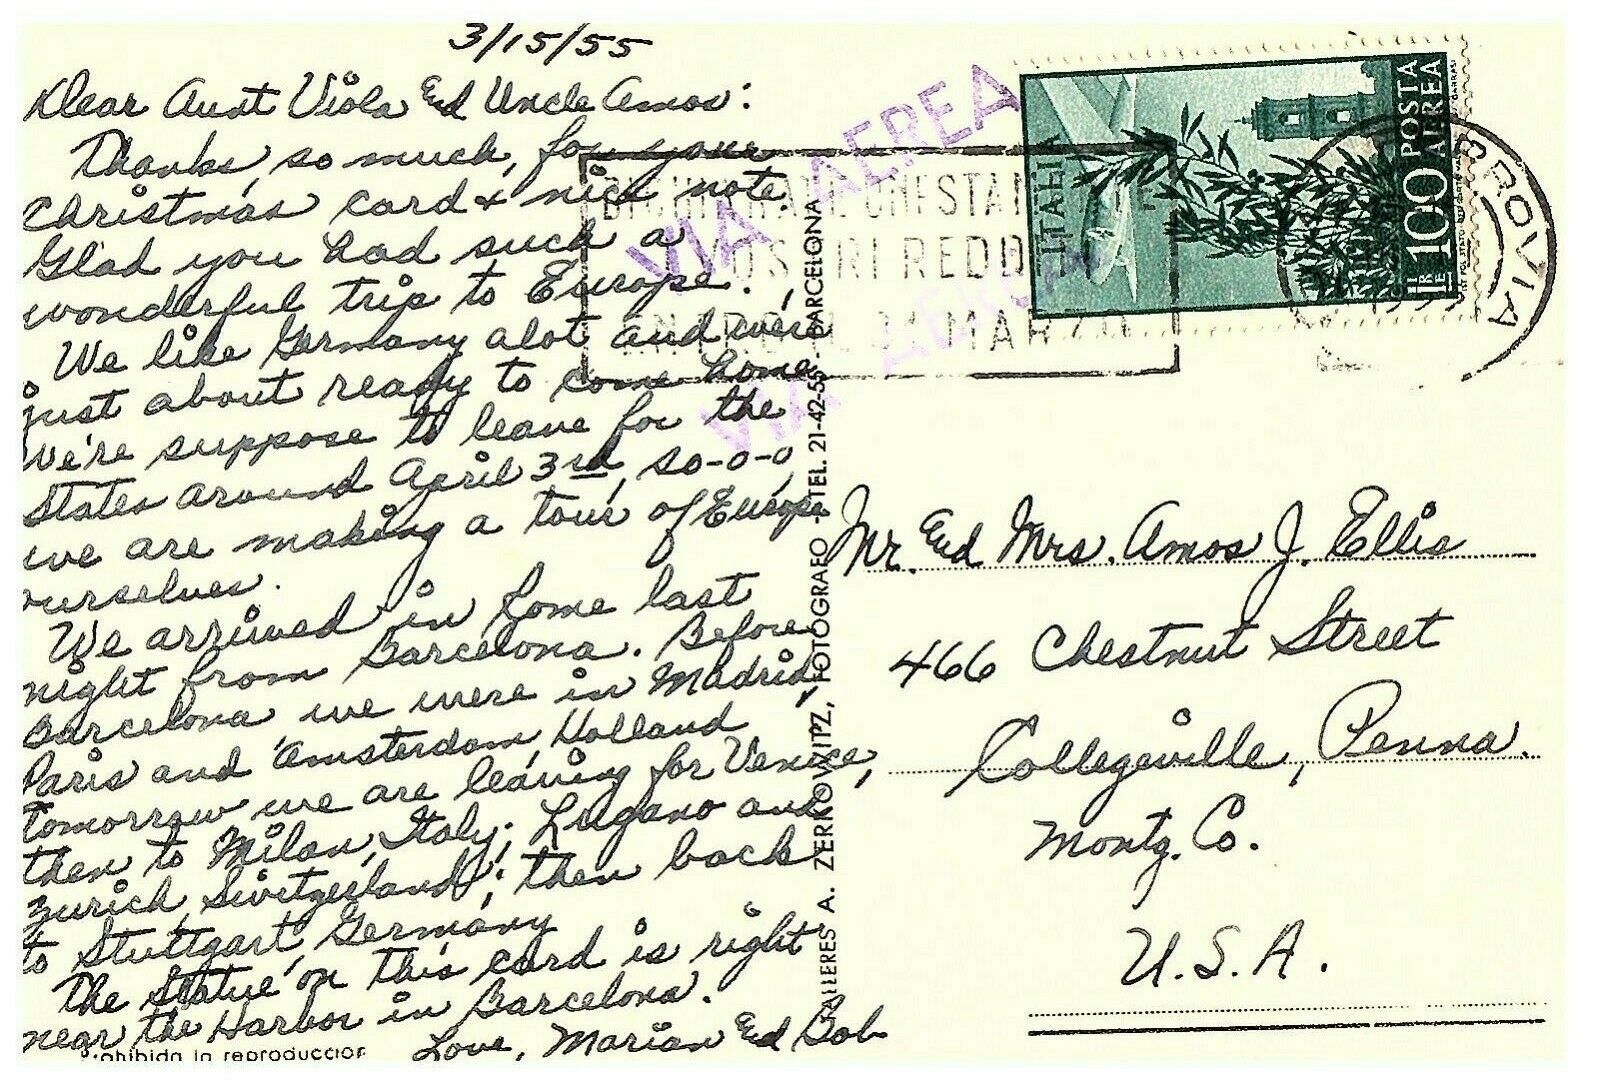 3/15/55
Dear Aunt Viola and Uncle Amos:
Thanks, so much, for your
Christmas card & nice note.
Glad you had such a
wonderful trip to Europe.
We like Germany alot and we're
just about ready to come home.
We're suppose to leave for the
States around April 3rd, so-o-o,
we are making a tour of Europe
ourselves.
We arrived in Rome last
night from Barcelona. Before
Barcelona, we were in Madrid,
Paris and Amsterdam, Holland
tomorrow we are leaving for Venice,
then to Milan, Italy; Lugano and
Zurich, Switzerland; then back
to Stuttgart, Germany
The Statue on this card is right
near the Harbor in Barcelona.
Love, Marian and Bob
ohibida la reproduccion
TALLERES A. ZERKOWITZ, FOTOGRAFO - TEL. 21-42-55 - BARCELONA
VIA AEREA
VIA AEREA
REDD
31 MARZO
ITALIA
POSTA AEREA
LIRE 100
ROVIA
Mr. and Mrs. Amos J. Ellis
466 Chestnut Street
Collegeville, Penna.
Montg. Co.
U.S.A.